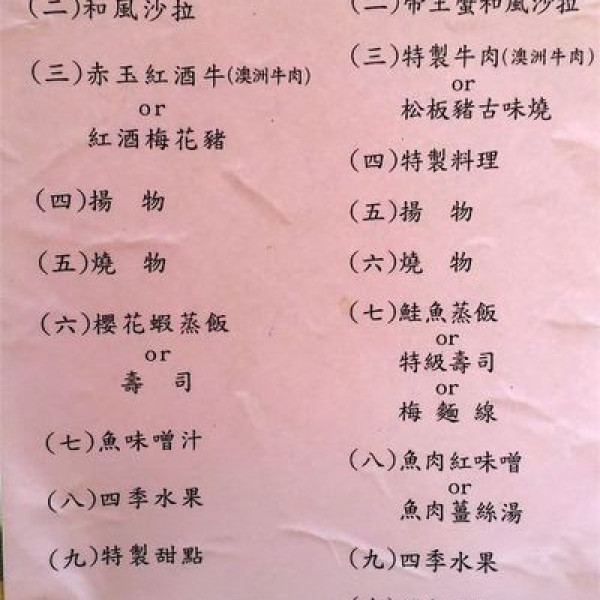 (二)和風沙拉
(三)赤玉紅酒牛(澳洲牛肉)
or
紅酒梅花豬
(四)揚 物
(五)燒 物
(六)櫻花蝦蒸飯
or
壽 司
(七)魚味噌汁
(八)四季水果
(九)特製甜點
(二)帝王蟹和風沙拉
(三)特製牛肉(澳洲牛肉)
or
松板豬古味燒
(四)特製料理
(五)揚 物
(六)燒 物
(七)鮭魚蒸飯
or
特級壽司
or
梅 麵 線
(八)魚肉紅味噌
or
魚肉薑絲湯
(九)四季水果